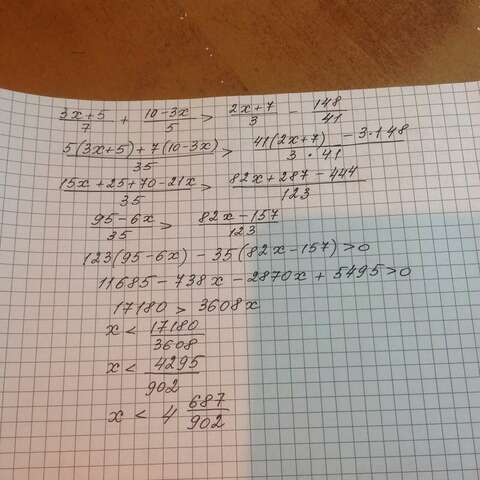 (3x+5)/7 + (10-3x)/5 > (2x+7)/3 - 148/41
(5(3x+5)+7(10-3x))/35 > (41(2x+7)-3·148)/(3·41)
(15x+25+70-21x)/35 > (82x+287-444)/123
(95-6x)/35 > (82x-157)/123
123(95-6x)-35(82x-157)>0
11685-738x-2870x+5495>0
17180 > 3608x
x < 17180/3608
x < 4295/902
x < 4 687/902